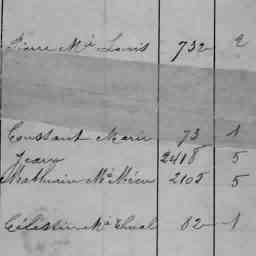 Pierre Me Louis 732 2
Constant Marie 73 1
Jean 2418 5
Mathurin Me 2105 5
Célestin Me 82 1